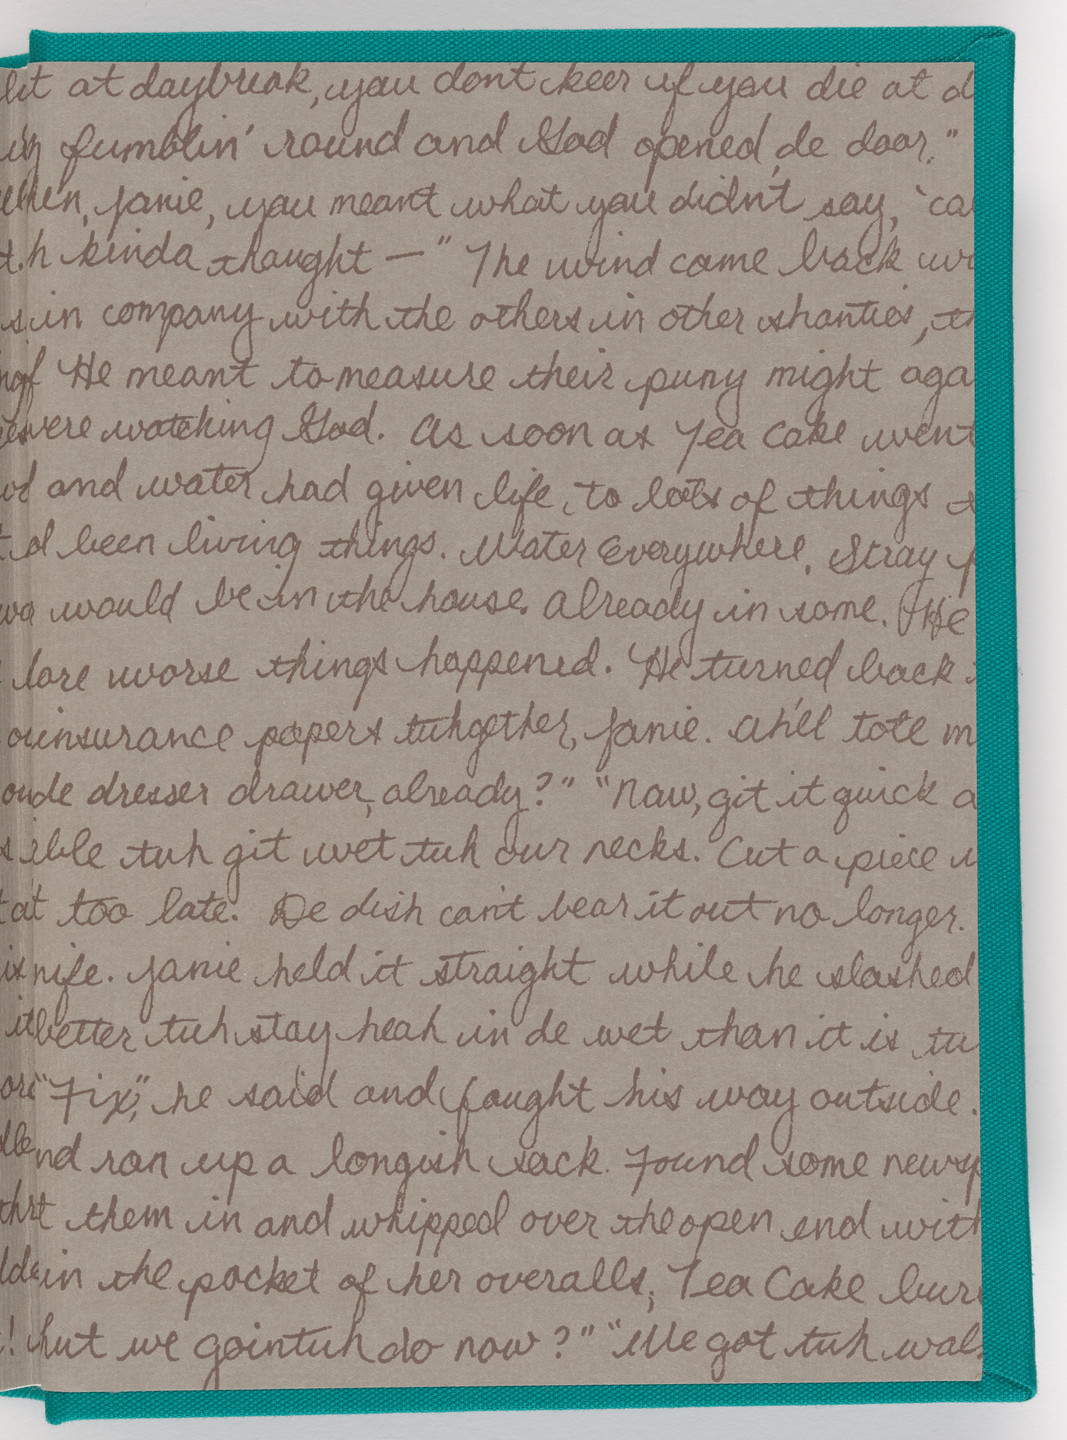 at daybreak, you don't keer if you die at d
fumblin' round and God opened de door."
Janie, you meant what you didn't say, 'ca
h kinda thought — " The wind came back wi
in company with the others in other shanties, th
He meant to measure their puny might aga
were watching God. As soon as Tea Cake went
and water had given life to lots of things t
d been living things. Water everywhere. Stray f
would be in the house. Already in some. He
lore worse things happened. He turned back
insurance papers tuhgether, Janie. Ah'll tote m
de dresser drawer, already?" "Naw, git it quick a
ible tuh git wet tuh our necks. Cut a piece
t too late. De dish can't bear it out no longer.
nife. Janie held it straight while he slashed
better tuh stay heah in de wet than it is tu
"Fix," he said and fought his way outside.
nd ran up a longish sack. Found some newsp
t them in and whipped over the open end with
in the pocket of her overalls, Tea Cake bur
hut we goin tuh do now?" "We got tuh wal